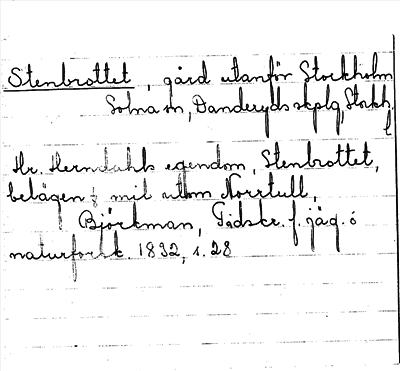 Stenbrottet, gård utanför Stockholm
Solna sn, Danderyds skplg, Stockh.
l
Hr. Herndahls egendom, Stenbrottet,
belägen ½ mil utom Norrtull,
Björkman, Tidskr. f. jäg. o
naturforsk. 1832, s. 28